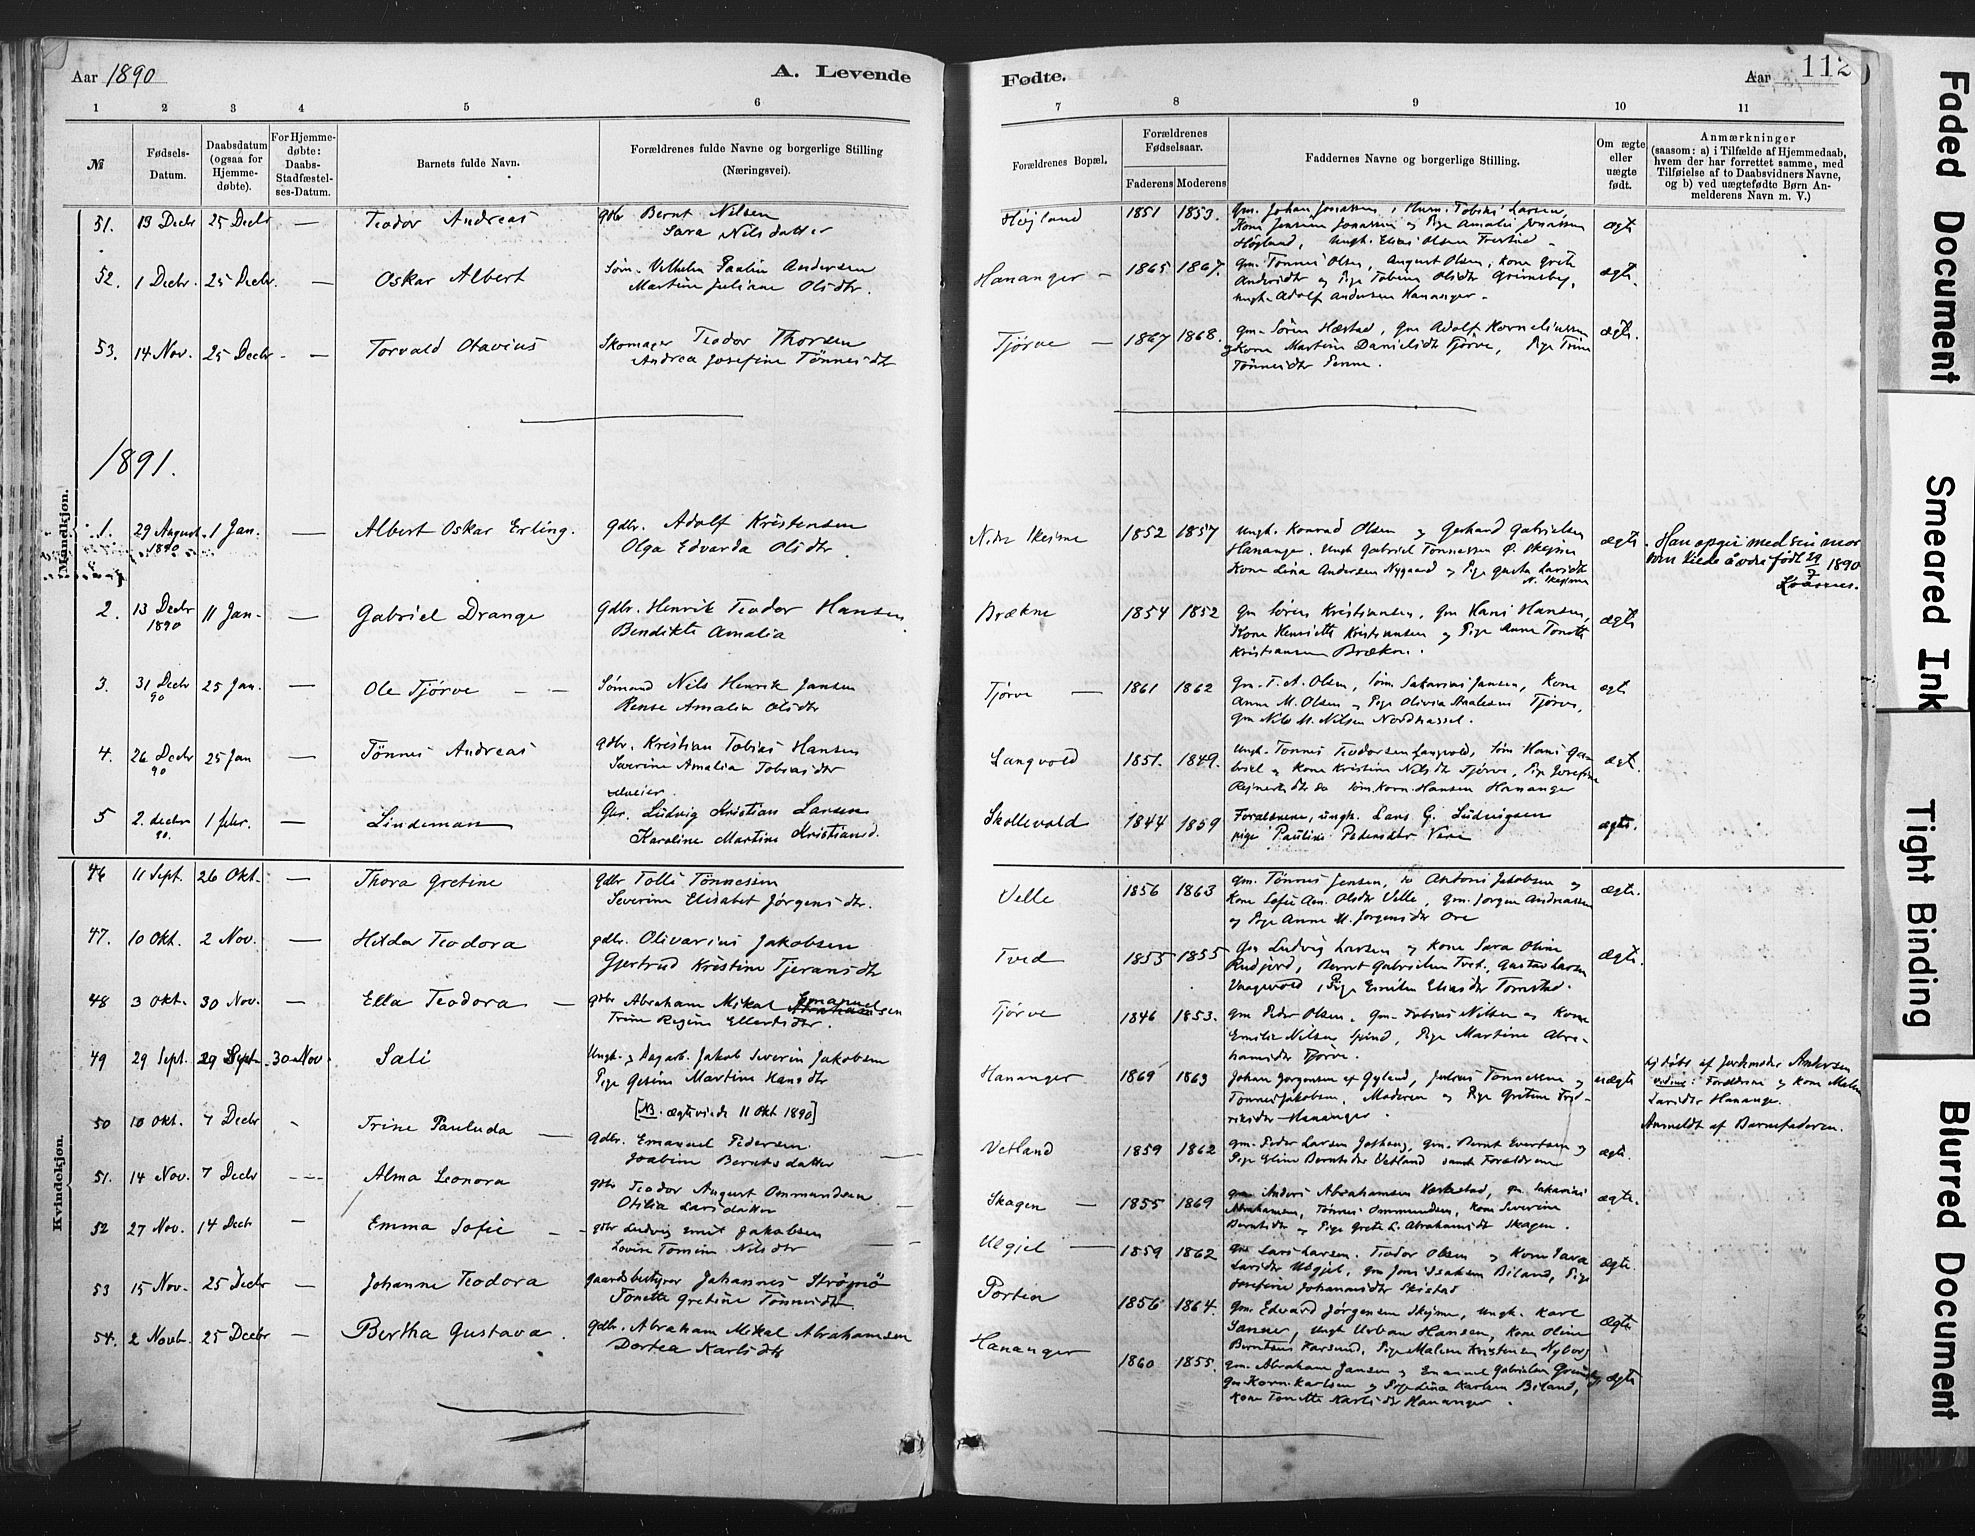 Aar 1890
A. Levende
Fødte.
Aar
112
1 2 3 4 5 6 7 8 9 10 11
№
Fødsels-
Datum.
Daabsdatum
(ogsaa for
Hjemme-
døbte).
For Hjemme-
døbte:
Daabs-
Stadfæstel-
ses-Datum.
Barnets fulde Navn.
Forældrenes fulde Navne og borgerlige Stilling
(Næringsvei).
Forældrenes Bopæl.
Forældrenes
Fødselsaar.
Faderens Moderens
Faddernes Navne og borgerlige Stilling.
Om ægte
eller
uægte
født.
Anmærkninger
(saasom: a) i Tilfælde af Hjemmedaab,
hvem der har forrettet samme, med
Tilføielse af to Daabsvidners Navne,
og b) ved uægtefødte Børn An-
melderens Navn m. V.)
Mandkjøn.
51. 19 Decbr 25 Decbr — Teodor Andreas gdbr Bernt Nilsen
Sara Nilsdatter
Højland 1851 1853. gm. Johan Jonassen, Tobias Larsen,
Kone Jensine Jonassen og Pige Amalie Jonassen
Højland, ungk. Elias Olsen ægte
52. 1 Decbr. 25 Decbr. — Oskar Albert Søm. Vilhelm Paulin Andersen
Martine Juliane Olsdtr.
Hananger — 1865 1867. gm. Tønnes Olsen, August Olsen, Kone Grete
Andersdtr og Pige Tobine Olsdtr Grimsby,
ungk. Adolf Andersen Hananger. ægte.
53. 14 Nov. 25 Decbr. — Torvald Otavius Skomager Teodor Thorsen
Andrea Josefine Tønnesdtr
Tjørve — 1867 1868. gm. Søren Hæstad, gm Adolf Korneliussen
og Kone Martine Danielsdtr Tjørve, Pige Trine
Tønnesdtr Penne. ægte.
1891.
1. 29 August 1890 1 Jan. — Albert Oskar Erling. gdbr. Adolf Kristensen
Olga Edvarda Olsdtr.
N. Skejme 1852 1857 ungk. Konrad Olsen og Gerhard Gabrielsen
Hananger. ungk Gabriel Tønnessen Ø. Skejme
Kone Lina Andersen Nygaard og Pige Gusta Larsdtr
N. Skejme ægte
Han opgir med sin mor
som kilde å være født 29/7 1890
2. 13 Decbr 1890 11 Jan. — Gabriel Drange gdbr. Henrik Teodor Hansen.
Bendikte Amalia
Brækne 1854 1852 gm Søren Kristiansen, gm Hans Hansen,
Kone Henriette Kristiansen og Pige Anne Tonette
Kristiansen Brækne. ægte
3. 31 Decbr 90 25 Jan. — Ole Tjørve Sømand Nils Henrik Jansen
Rense Amalia Olsdtr
Tjørve — 1861 1862 gm. T. A. Olsen, Søm. Sakarias Jansen, Kone
Anne M. Olsen og Pige Olivia Tjørve,
gm Nils M. Nilsen Nordhassel. ægte
4. 26 Decbr 90 25 Jan — Tønnes Andreas gdbr. Kristian Tobias Hansen
Severine Amalia Tobiasdtr
Langvold 1851. 1849. ungk. Tønnes Teodorsen Langvold, Søm Hans Ga-
briel og Kone Kristine Nilsdtr Tjørve, Pige Josefine
Rejnertsdtr do Søm. Korn. Hansen Hananger ægt.
5 2. decbr 90. 1 febr. — Lindeman selveier.
Gbr. Ludvig Kristian Larsen
Karoline Martine Kristiansd.
Skollevold 1844 1859 Forældrene, ungk. Lars G. Ludvigsen
pige Pauline Pedersdtr Vere ægte.
Kvindekjøn.
46 11 Sept. 26 Okt. — Thora Gretine gdbr Tolli Tønnessen
Severine Elisabet Jørgensdtr.
Velle 1856 1863 gm. Tønnes Jensen, do Antoni Jakobsen og
Kone Sofie Am. Olsdtr Velle, gm. Jørgen Andreassen
og Pige Anne M. Jørgensdtr Ore ægte.
47. 10 Okt. 2 Nov. — Hilda Teodora gdbr. Olivarius Jakobsen
Gjertrud Kristine Tjeransdtr
Tved 1853 1855 gm Ludvig Larsen og Kone Sara Oline
Rudjord, Bernt Gabrielsen Tved, Gustav Larsen
Vaagevold, Pige Emilie Eliasdtr Tornstad. ægte.
48 3 Okt. 30 Nov. — Ella Teodora — gdbr Abraham Mikal Emanuelsen
Trine Regine Ellertsdtr.
Tjørve 1846 1853. gm Peder Olsen, gm. Tobias Nilsen og Kone
Emilie Nilsen Spind, Pige Martine Abra-
hamsdtr Tjørve.
49 29 Sept. 29 Sept. 30 Nov. Sali Ungk. og Dagarb. Jakob Severin Jakobsen
Pige Gesine Martine Hansdtr
[NB. ægteviede 11 Okt 1890]
Hananger 1869 1863 Johan Jørgensen af Gyland, Julius Tønnessen og
Tønnes Jakobsen, Moderen og Pige Gretine Fred-
riksdtr Hananger. uægte
Hj. døbt af Jordemoder Andersen
Vidner: Forældrene og Kone Malene
Larsdtr Hananger.
Anmeldt af Barnefaderen.
50 10 Okt. 7 Decbr - Trine Pauluda — gdbr. Emanuel Pedersen
Joabine Berntsdatter
Vetland 1859 1862 gm. Peder Larsen, gm. Bernt Evertsen og
Pige Eline Berntsdtr Vetland samt Forældrene ægte.
51. 14 Nov. 7 Decbr --- Alma Leonora gdbr Teodor August Ommundsen
Otilia Larsdatter
Skagen — 1855 1869 gm Anders Abrahamsen, gm. Sakarias
Abrahamsen, Tønnes Ommundsen, Kone Severine
Berntsdtr og Pige Grete L. Abrahamsdtr Skagen. ægte.
52 27 Nov. 14 Decbr — Emma Sofie - gdbr Ludvig Emil Jakobsen
Lovise Tomine Nilsdtr
Ulgjel — 1859 1862 gm Lars Larsen. Teodor Olsen og Kone Sara
Larsdtr Ulgjel, gm Jens Isaksen Biland, Pige
Josefine Johannesdtr Skistad ægte.
53 15 Nov. 25 Decbr — Johanne Teodora gaardsbestyrer Johannes Strømø
Tonette Gretine Tønnesdtr.
Portin 1856 1864. gm. Edvard Jørgensen Skejme, ungk. Karl
Sanner, ungk Urban Hansen, Kone Oline
Berntsen Farsund, Pige Malene Kristensen Nyborg ægte
54. 2 Novb. 25 Decbr — Bertha Gustava. gdbr. Abraham Mikal Abrahamsen
Dortea Karlsdtr
Hananger 1860 1855. gm. Abraham Jansen og Emanuel Gabrielsen Grimsby,
gm Korn. Karlsen og Pige Lina Karlsen Biland,
Kone Tonette Karlsdtr Hananger. ægte
Faded Document
Smeared Ink
Tight Binding
Blurred Document